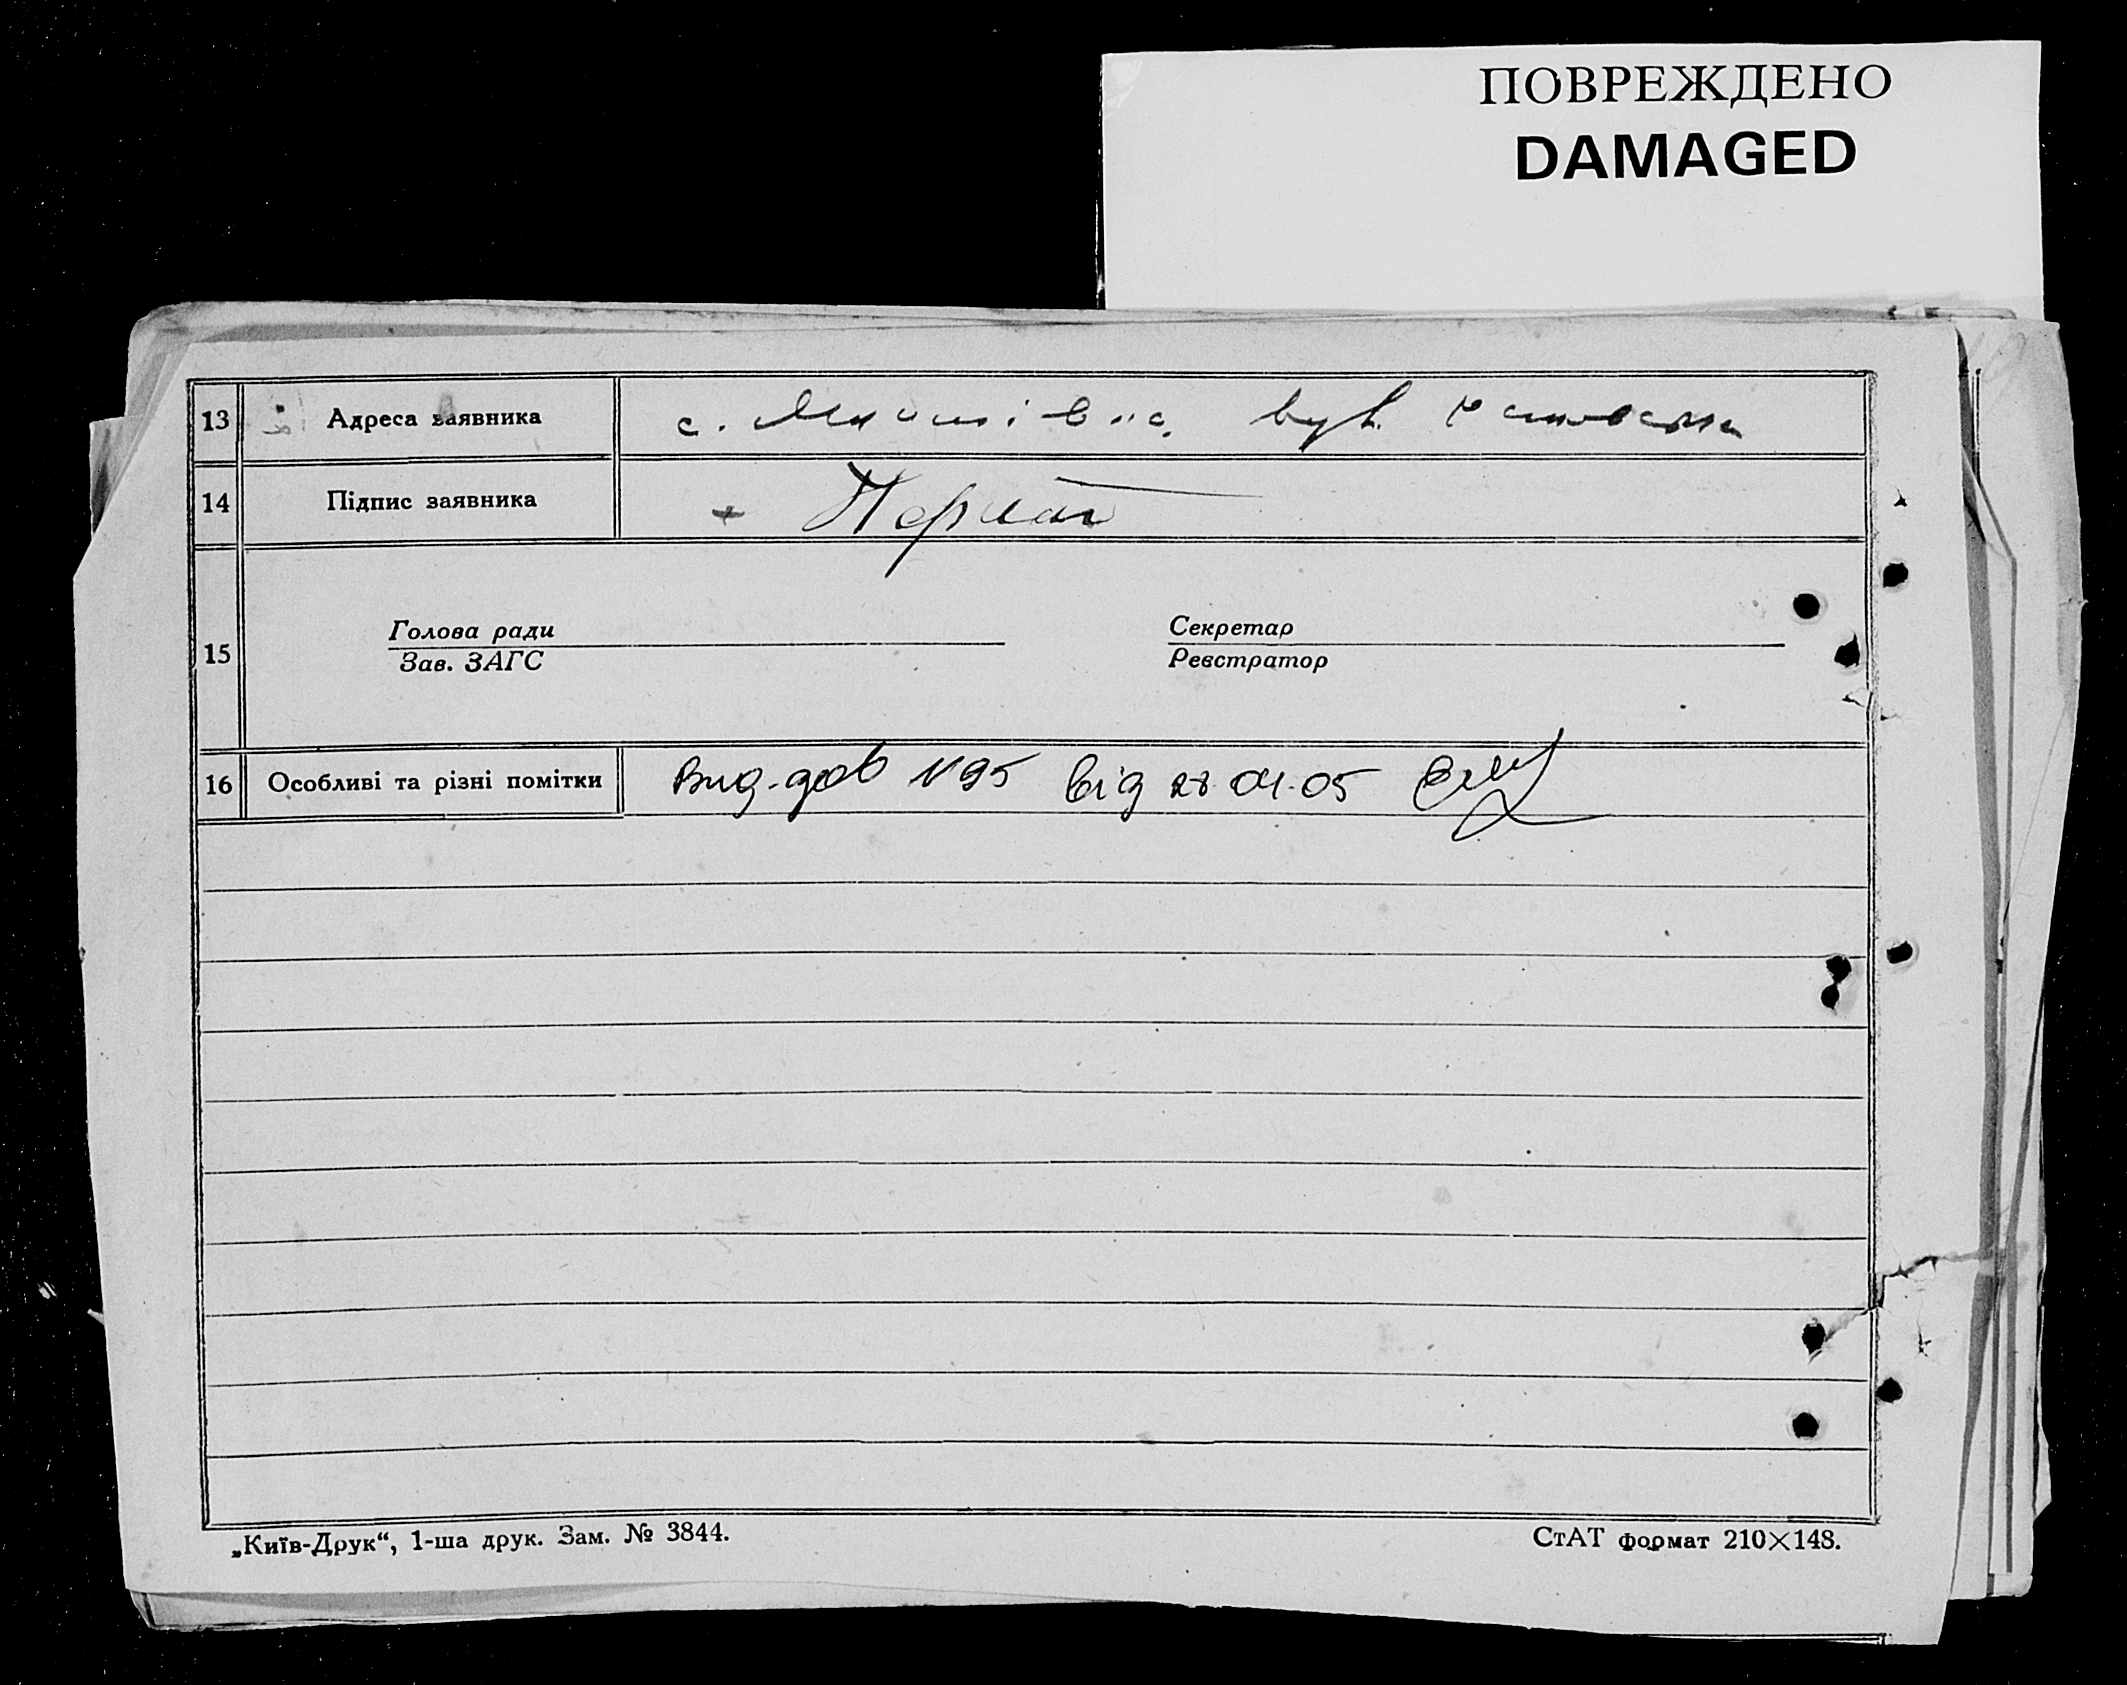 ПОВРЕЖДЕНО
DAMAGED
13 Адреса заявника с. вул.
14 Підпис заявника +
Голова ради Секретар
15
Зав. ЗАГС Реєстратор
16 Особливі та різні помітки Вид. дов N 95 від 28.04.05
„Київ-Друк“, 1-ша друк. Зам. № 3844. СтАТ формат 210×148.